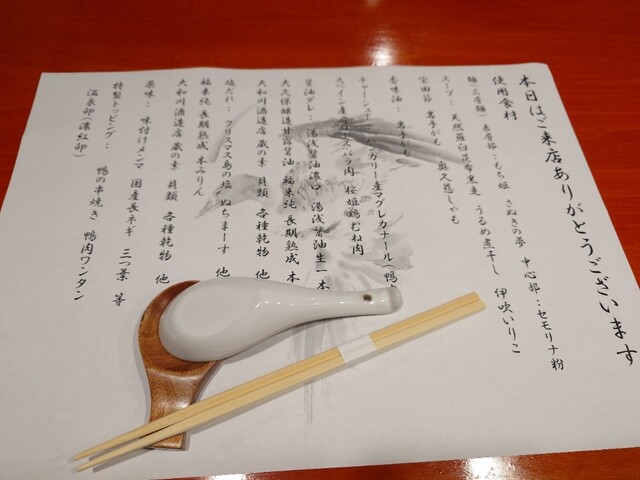 本日はご来店ありがとうございます
使用食材
麺(三層麺) 表層部:もち姫 さぬきの夢 中心部:セモリナ粉
スープ: 天然羅臼昆布黒走 うるめ煮干し 伊吹いりこ
宗田節 岩手がも 奥久慈しゃも
香味油: 岩手がも
チャーシュー: ハンガリー産マグレカナール(鴨
スペイン産 バラ肉 桜姫鶏むね肉
醤油ダレ: 湯浅醤油濃口 湯浅醤油生一本
大久保醸造甘露醤油 福来純 長期熟成 本
大和川酒造店 蔵の素 貝類 各種乾物 他
塩だれ: クリスマス島の塩 ぬちまーす 他
福来純 長期熟成 本みりん
大和川酒造店 蔵の素 貝類 各種乾物 他
薬味: 味付けメンマ 国産長ネギ 三つ葉 等
特製トッピング: 鴨の串焼き 鴨肉ワンタン
温泉卵(濃紅卵)